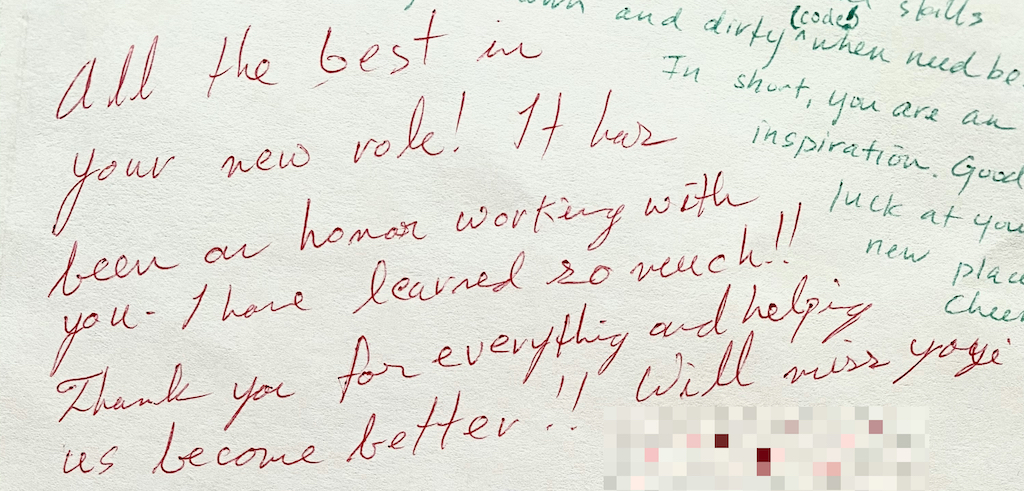 All the best in
your new role! It has
been an honor working with
you. I have learned so much!!
Thank you for everything and helping
us become better!! Will miss
skills
and dirty (code) when need be
In short, you are an
inspiration. Good
luck at your
new